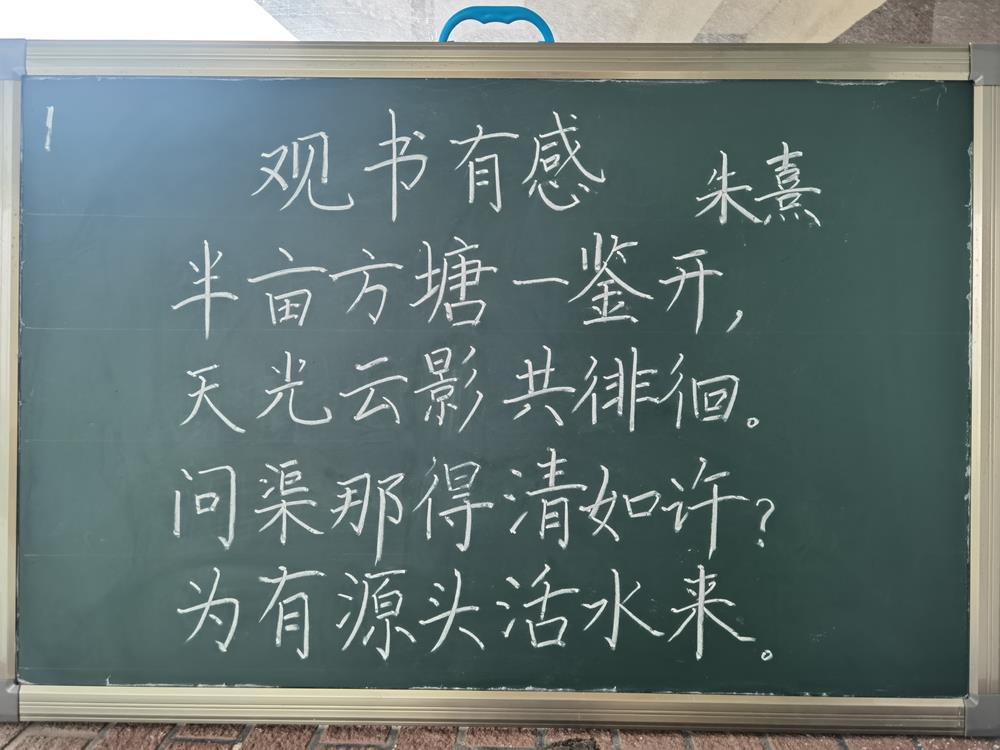 1
观书有感 朱熹
半亩方塘一鉴开，
天光云影共徘徊。
问渠那得清如许？
为有源头活水来。